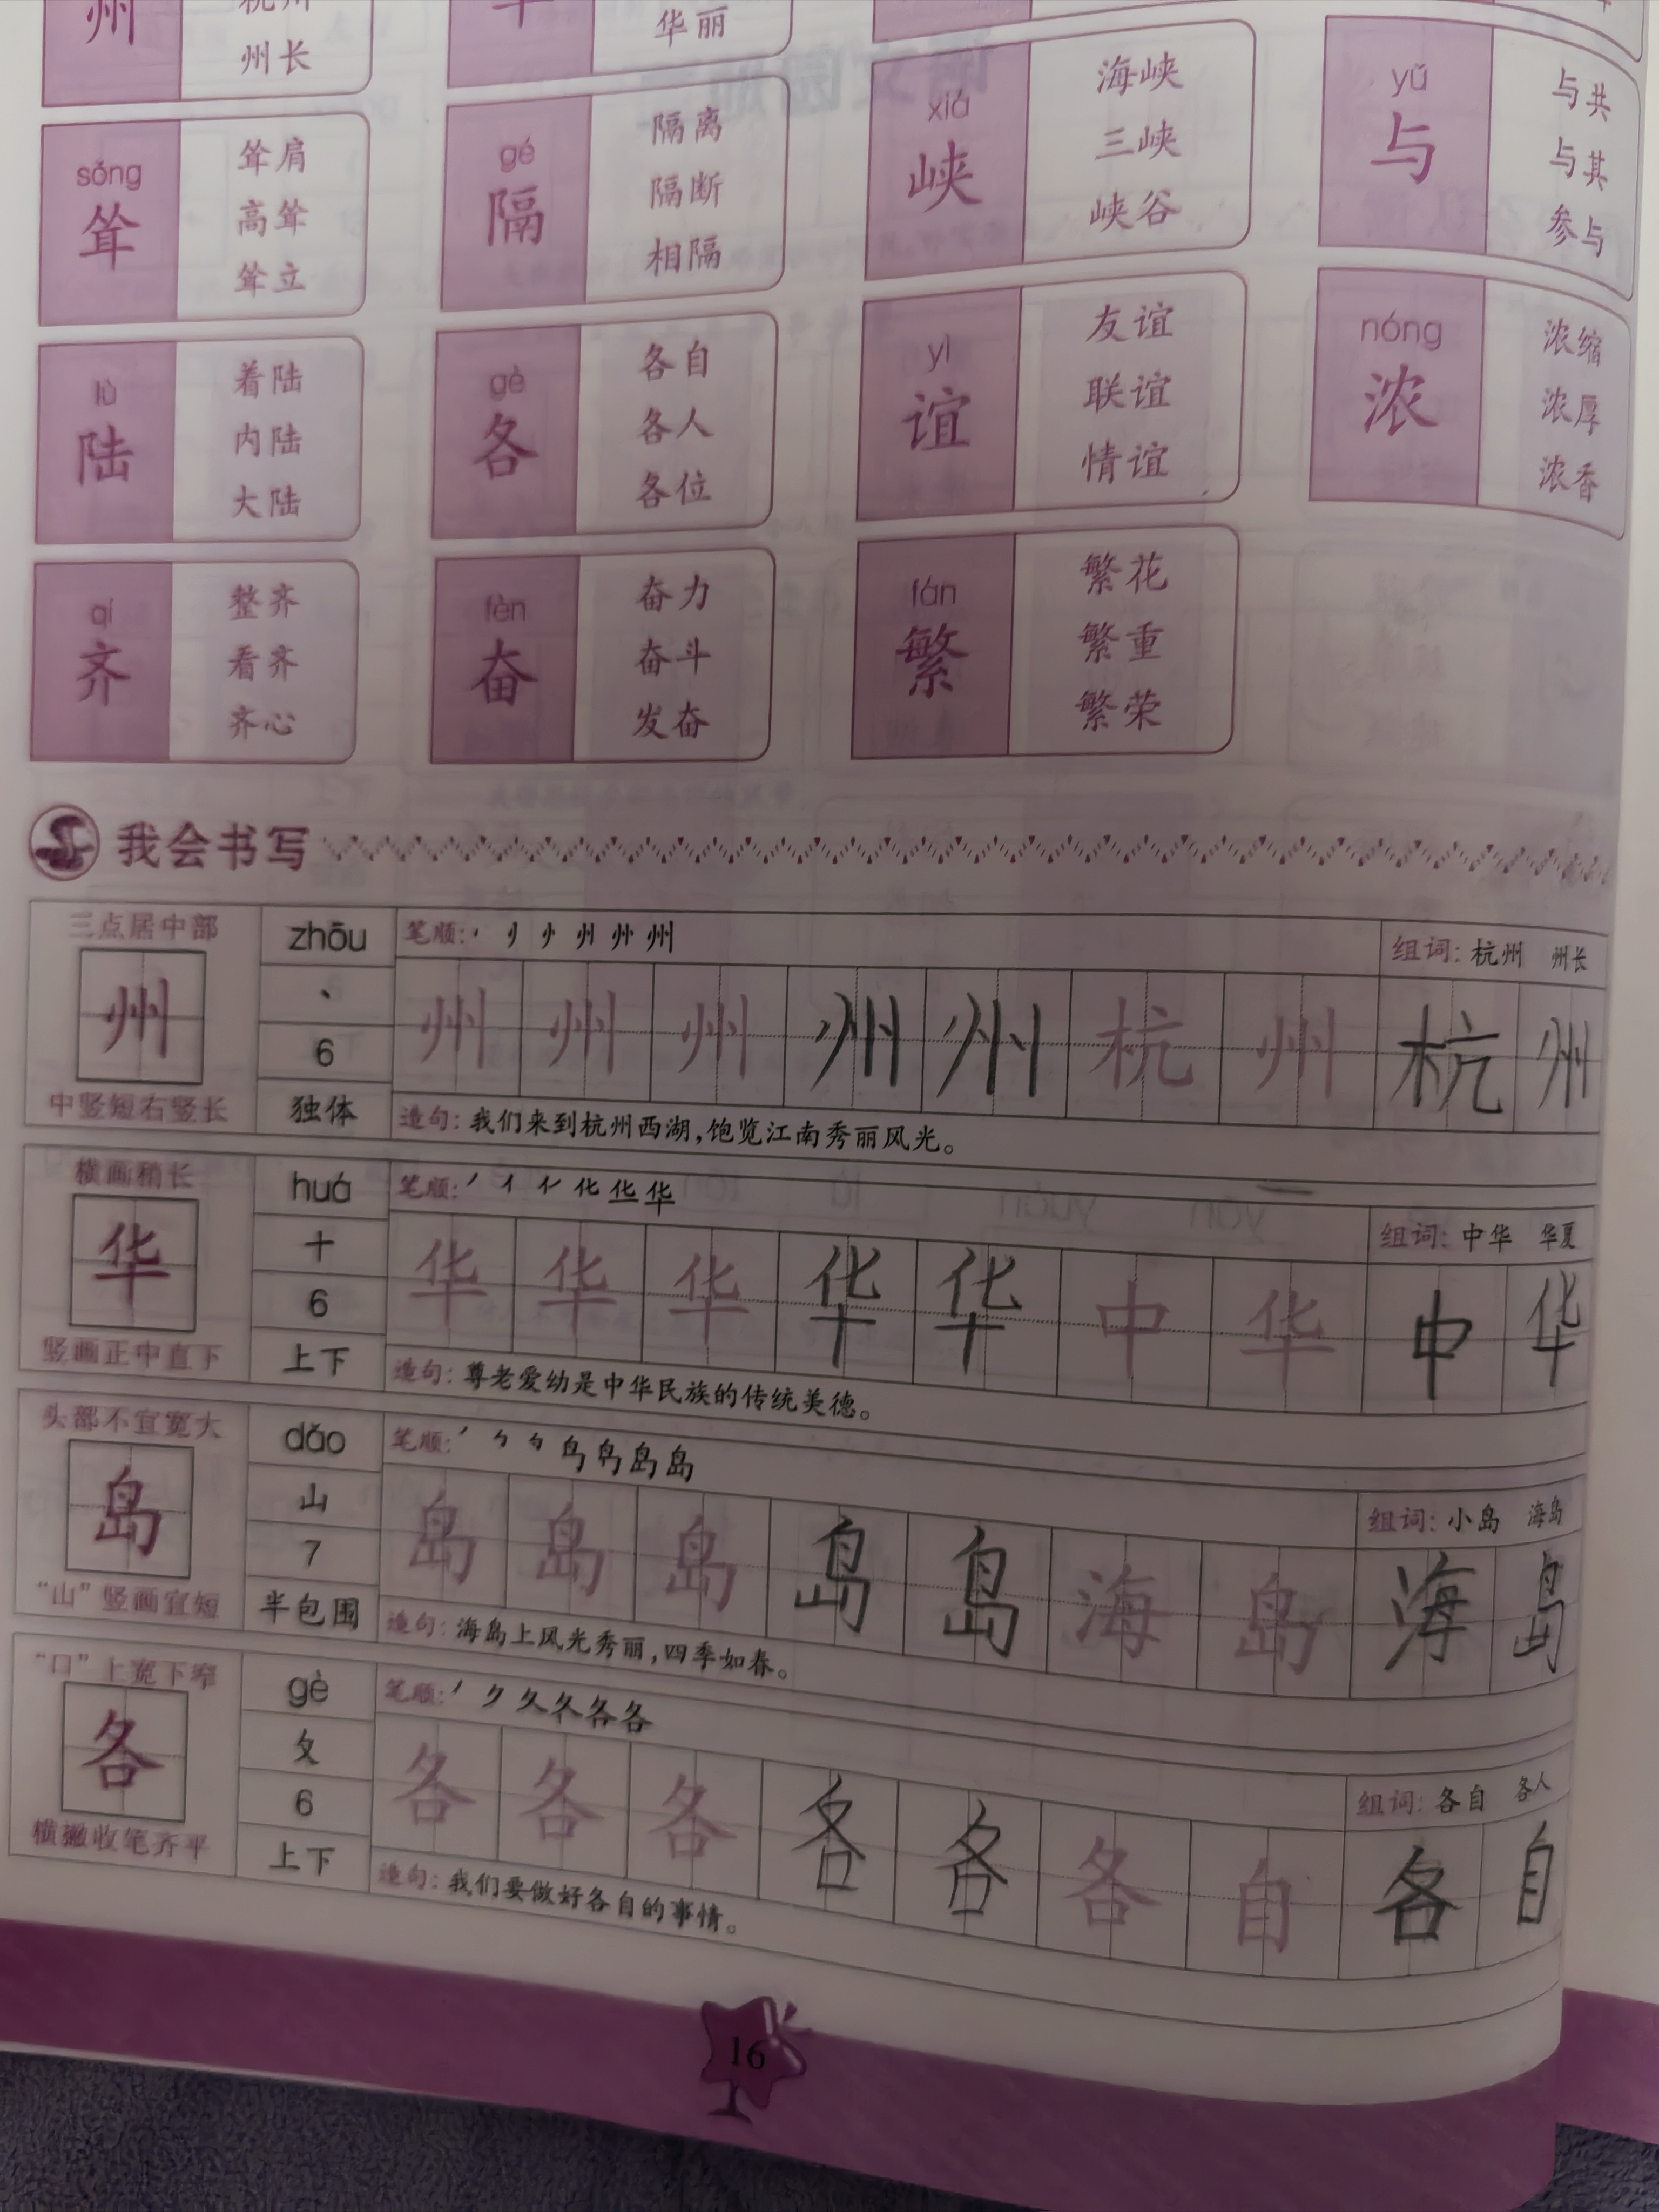 州 杭州 州长
华丽
sǒng 耸 耸肩 高耸 耸立
gé 隔 隔离 隔断 相隔
xiá 峡 海峡 三峡 峡谷
yǔ 与 与共 与其 参与
lù 陆 着陆 内陆 大陆
gè 各 各自 各人 各位
yì 谊 友谊 联谊 情谊
nóng 浓 浓缩 浓厚 浓香
qí 齐 整齐 看齐 齐心
fèn 奋 奋力 奋斗 发奋
fán 繁 繁花 繁重 繁荣
我会书写
三点居中部
州
中竖短右竖长
zhōu
丶
6
独体
笔顺:
州
组词: 杭州 州长
州 州 州 州 州 杭 州 杭 州
造句: 我们来到杭州西湖,饱览江南秀丽风光。
横画稍长
华
竖画正中直下
huá
十
6
上下
笔顺: 丿 亻 化 华
组词: 中华 华夏
华 华 华 华 华 中 华 中 华
造句: 尊老爱幼是中华民族的传统美德。
头部不宜宽大
岛
“山”竖画宜短
dǎo
山
7
半包围
笔顺: 岛
组词: 小岛 海岛
岛 岛 岛 岛 岛 海 岛 海 岛
造句: 海岛上风光秀丽,四季如春。
“口”上宽下窄
各
横撇收笔齐平
gè
夂
6
上下
笔顺: 丿 夂 各
组词: 各自 各人
各 各 各 各 各 各 自 各 自
造句: 我们要做好各自的事情。
16